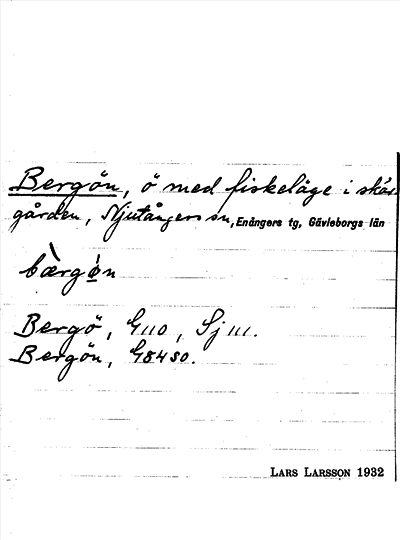 Bergön, ö med fiskeläge i skär-
gården, Njutångers sn, Enångers tg, Gävleborgs län
bærgøn
Bergö, G110, Sj111.
Bergön, G84SO.
LARS LARSSON 1932